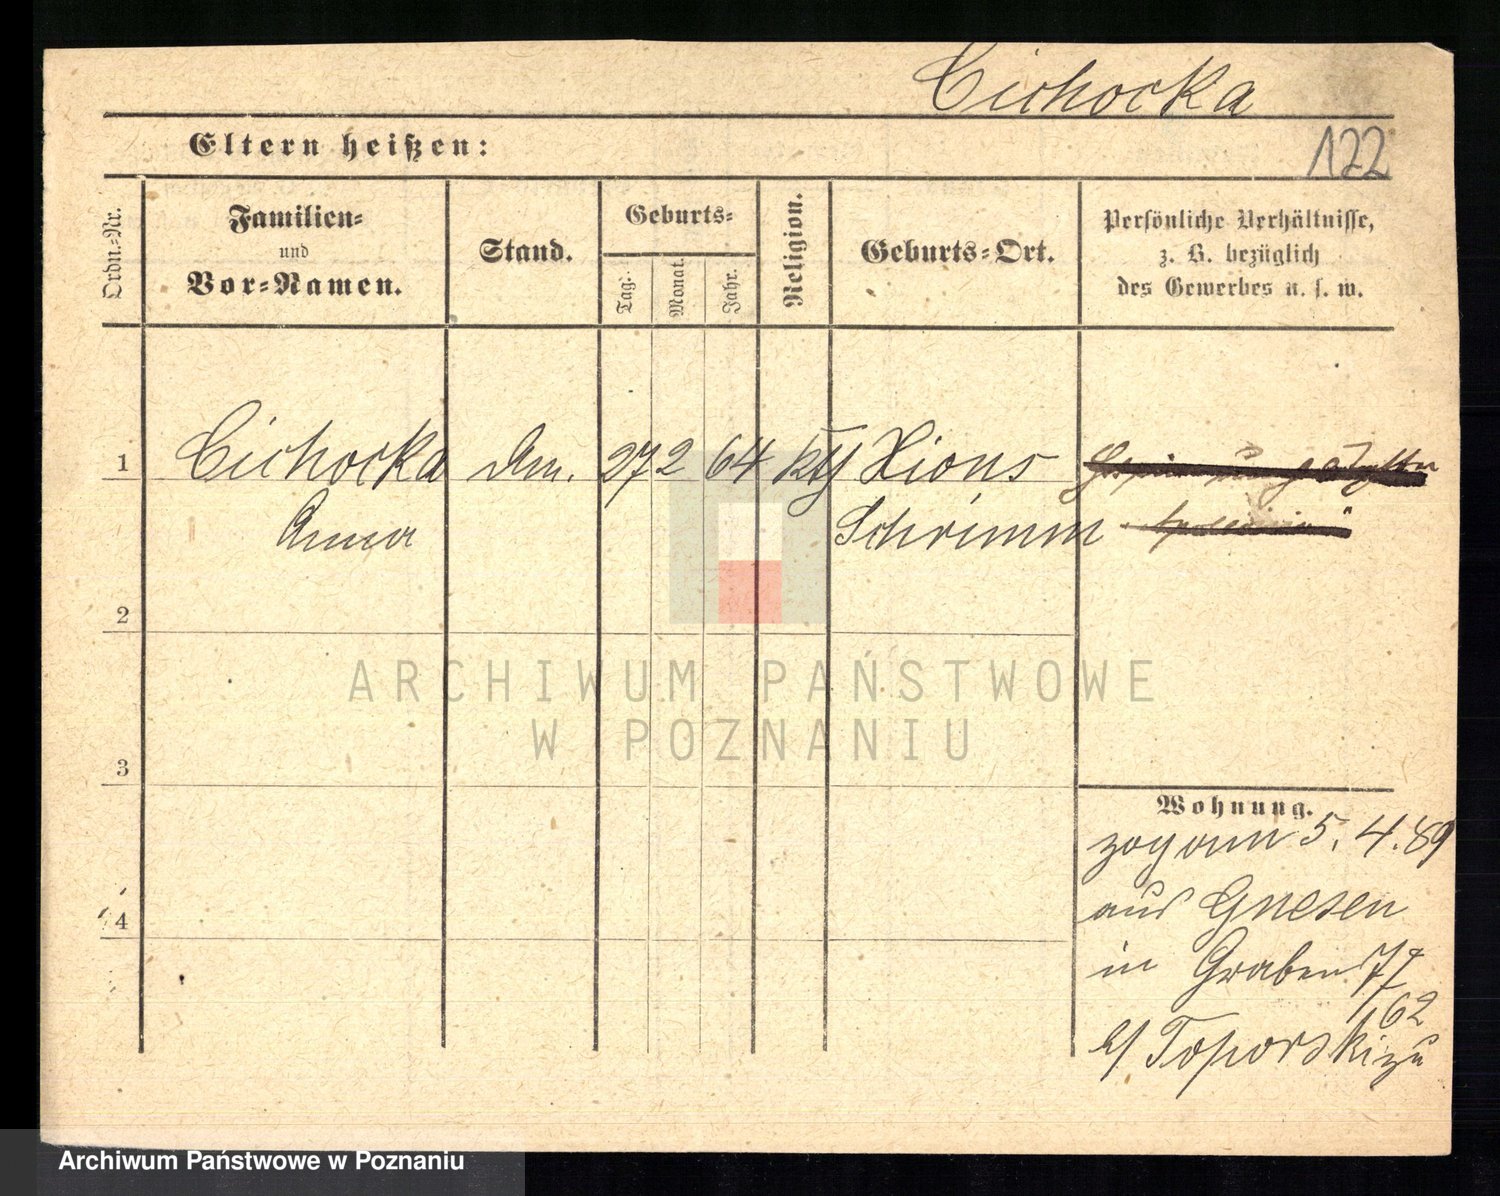 Cichocka
Eltern heißen:
122
Ordn.-Nr.
Familien-
und
Vor-Namen.
Stand.
Geburts-
Tag:
Monat.
Jahr.
Religion.
Geburts-Ort.
Persönliche Verhältnisse,
z. B. bezüglich
des Gewerbes u. s. w.
1 Cichocka 27 2 64 kth Xions
Anna Schrimm
2
3
4
Wohnung.
zog am 5. 4. 89
aus Gnesen
in Graben
62
b/ Toporski zu
ARCHIWUM PAŃSTWOWE
W POZNANIU
Archiwum Państwowe w Poznaniu